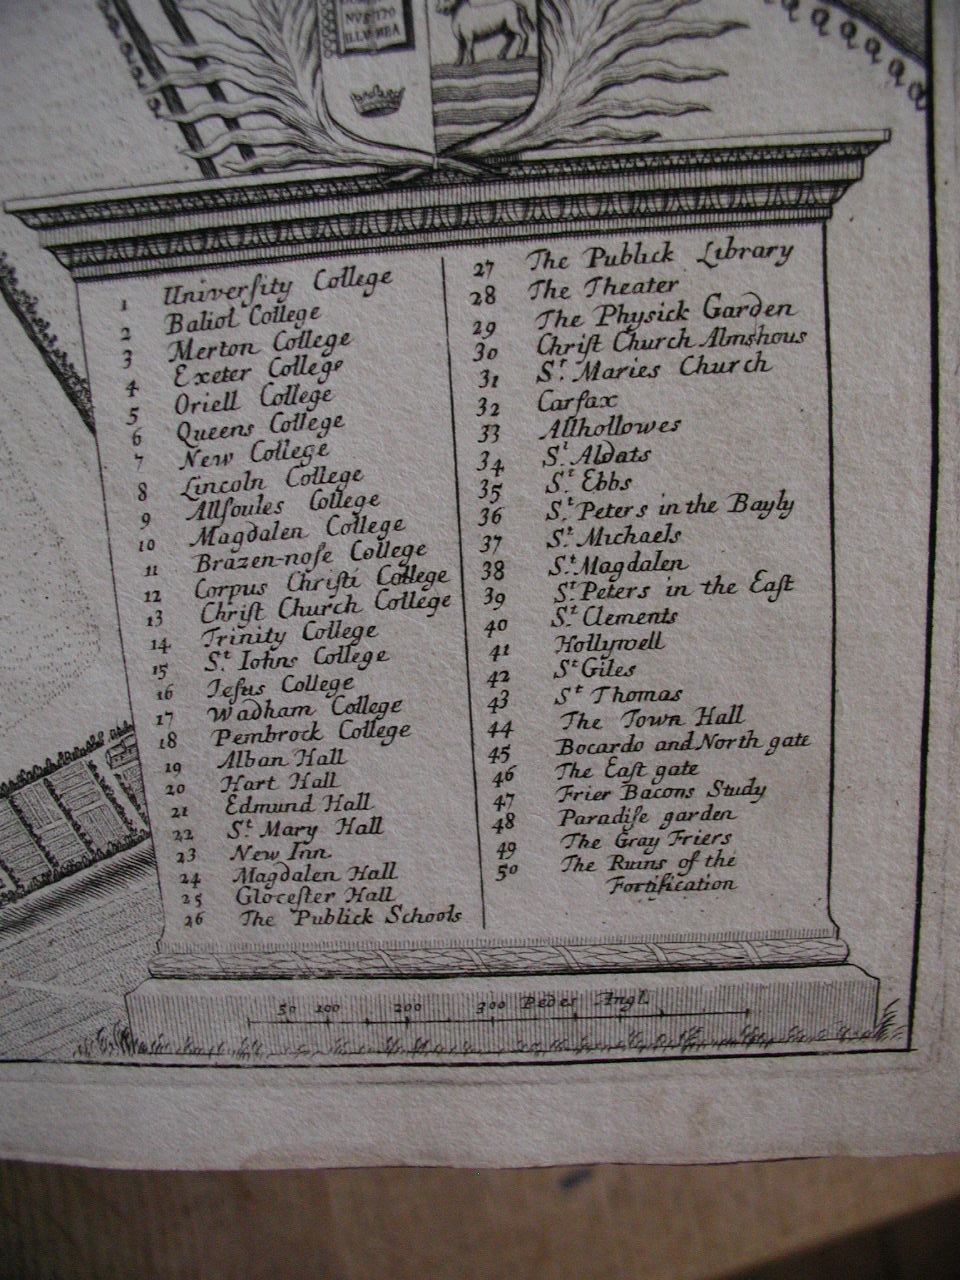 NVS TIO
ILLV MEA
1 Univerſity College
2 Baliol College
3 Merton College
4 Exeter College
5 Oriell College
6 Queens College
7 New College
8 Lincoln College
9 Allſoules College
10 Magdalen College
11 Brazen-noſe College
12 Corpus Chriſti College
13 Chriſt Church College
14 Trinity College
15 St. Iohns College
16 Ieſus College
17 Wadham College
18 Pembrock College
19 Alban Hall
20 Hart Hall
21 Edmund Hall
22 St. Mary Hall
23 New Inn
24 Magdalen Hall
25 Gloceſter Hall
26 The Publick Schools
27 The Publick Library
28 The Theater
29 The Physick Garden
30 Chriſt Church Almshous
31 St. Maries Church
32 Carfax
33 Allhollowes
34 St. Aldats
35 St. Ebbs
36 St. Peters in the Bayly
37 St. Michaels
38 St. Magdalen
39 St. Peters in the Eaſt
40 St. Clements
41 Hollywell
42 St Giles
43 St Thomas
44 The Town Hall
45 Bocardo and North gate
46 The Eaſt gate
47 Frier Bacons Study
48 Paradiſe garden
49 The Gray Friers
50 The Ruins of the
Fortification
50 100 200 300 Pedes Angl.